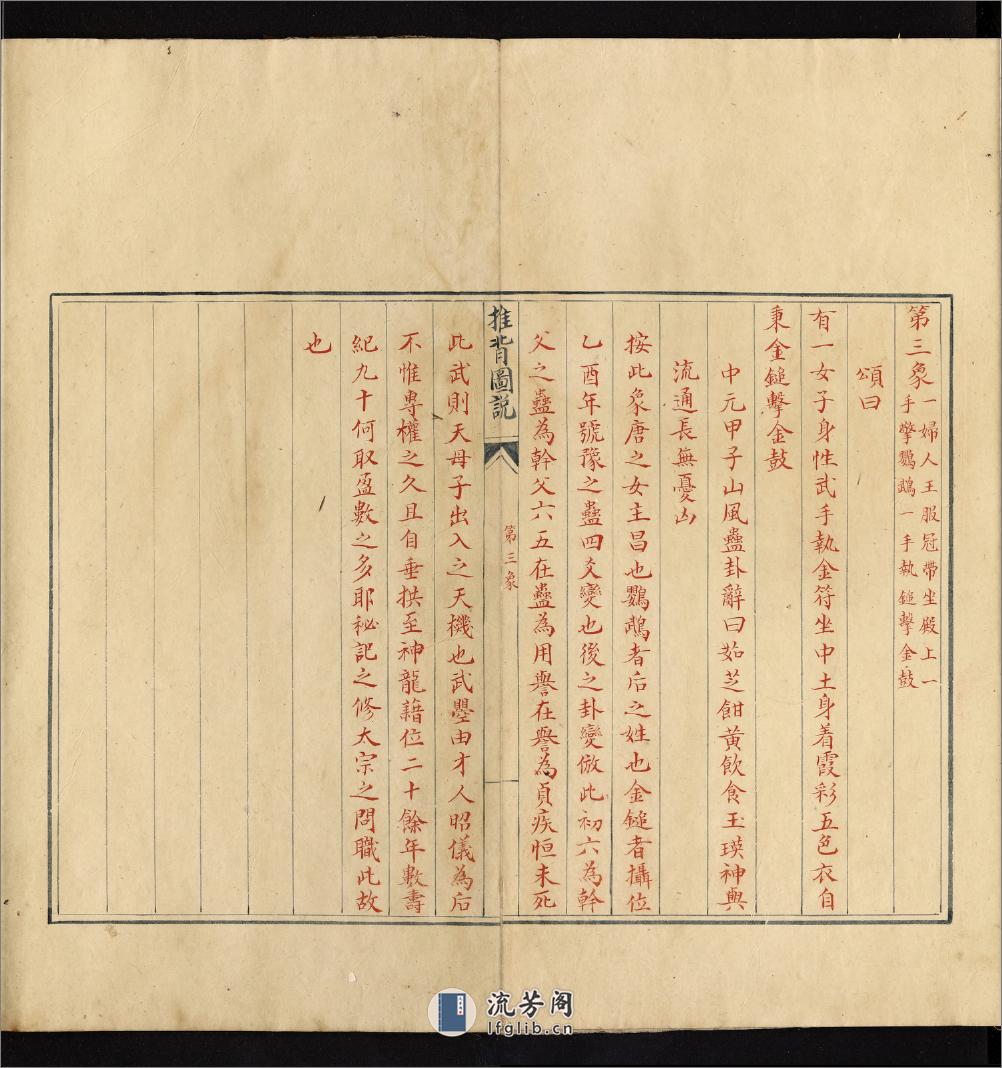 第三象一婦人王服冠帶坐殿上一
手擎鸚鵡一手執鎚擊金鼓
頌曰
有一女子身性武手執金符坐中土身着霞彩五色衣自
秉金鎚擊金鼓
中元甲子山風蠱卦辭曰茹芝飷黃飲食玉瑛神與
流通長無憂凶
按此象唐之女主昌也鸚鵡者后之姓也金鎚者攝位
乙酉年號豫之蠱四爻變也後之卦變倣此初六為幹
父之蠱為幹父六五在蠱為用譽在譽為貞疾恒未死
推背圖説
第三象
此武則天母子出入之天機也武曌由才人昭儀為后
不惟專權之久且自垂拱至神龍藉位二十餘年數壽
紀九十何取盈數之多耶秘記之修太宗之問職此故
也
流芳阁
lfglib.cn